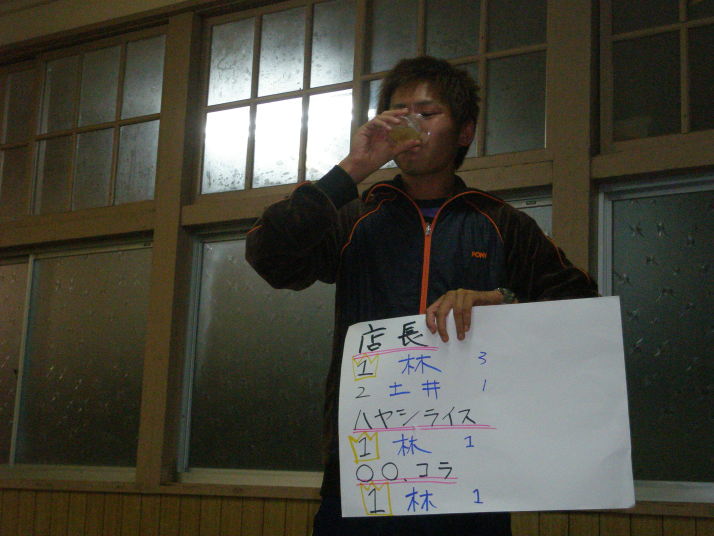 PONY
店長
1 林 3
2 土井 1
ハヤシライス
1 林 1
〇〇、コラ
1 林 1